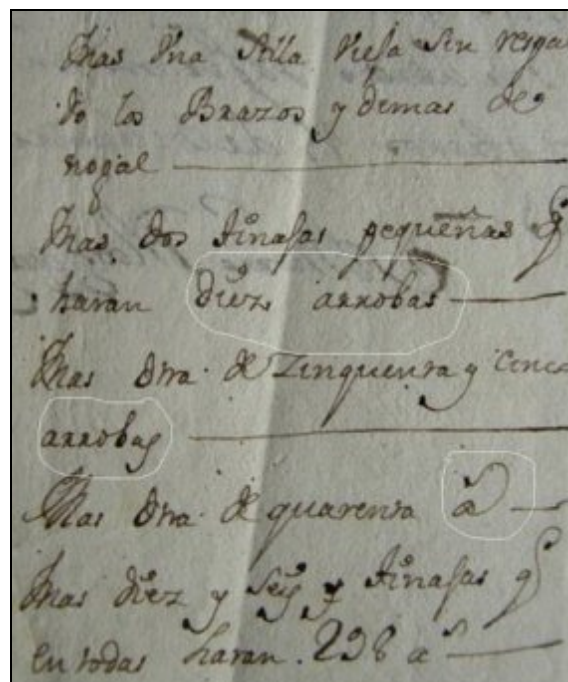 Mas Una Silla Vieja Sin respa
do los Brazos y demas de
nogal
Mas dos tinajas pequeñas q
haran diez arrobas
Mas otra de Zinquenta y cinco
arrobas
Mas otra de quarenta as
Mas diez y seis tinajas q
en todas haran 298 as